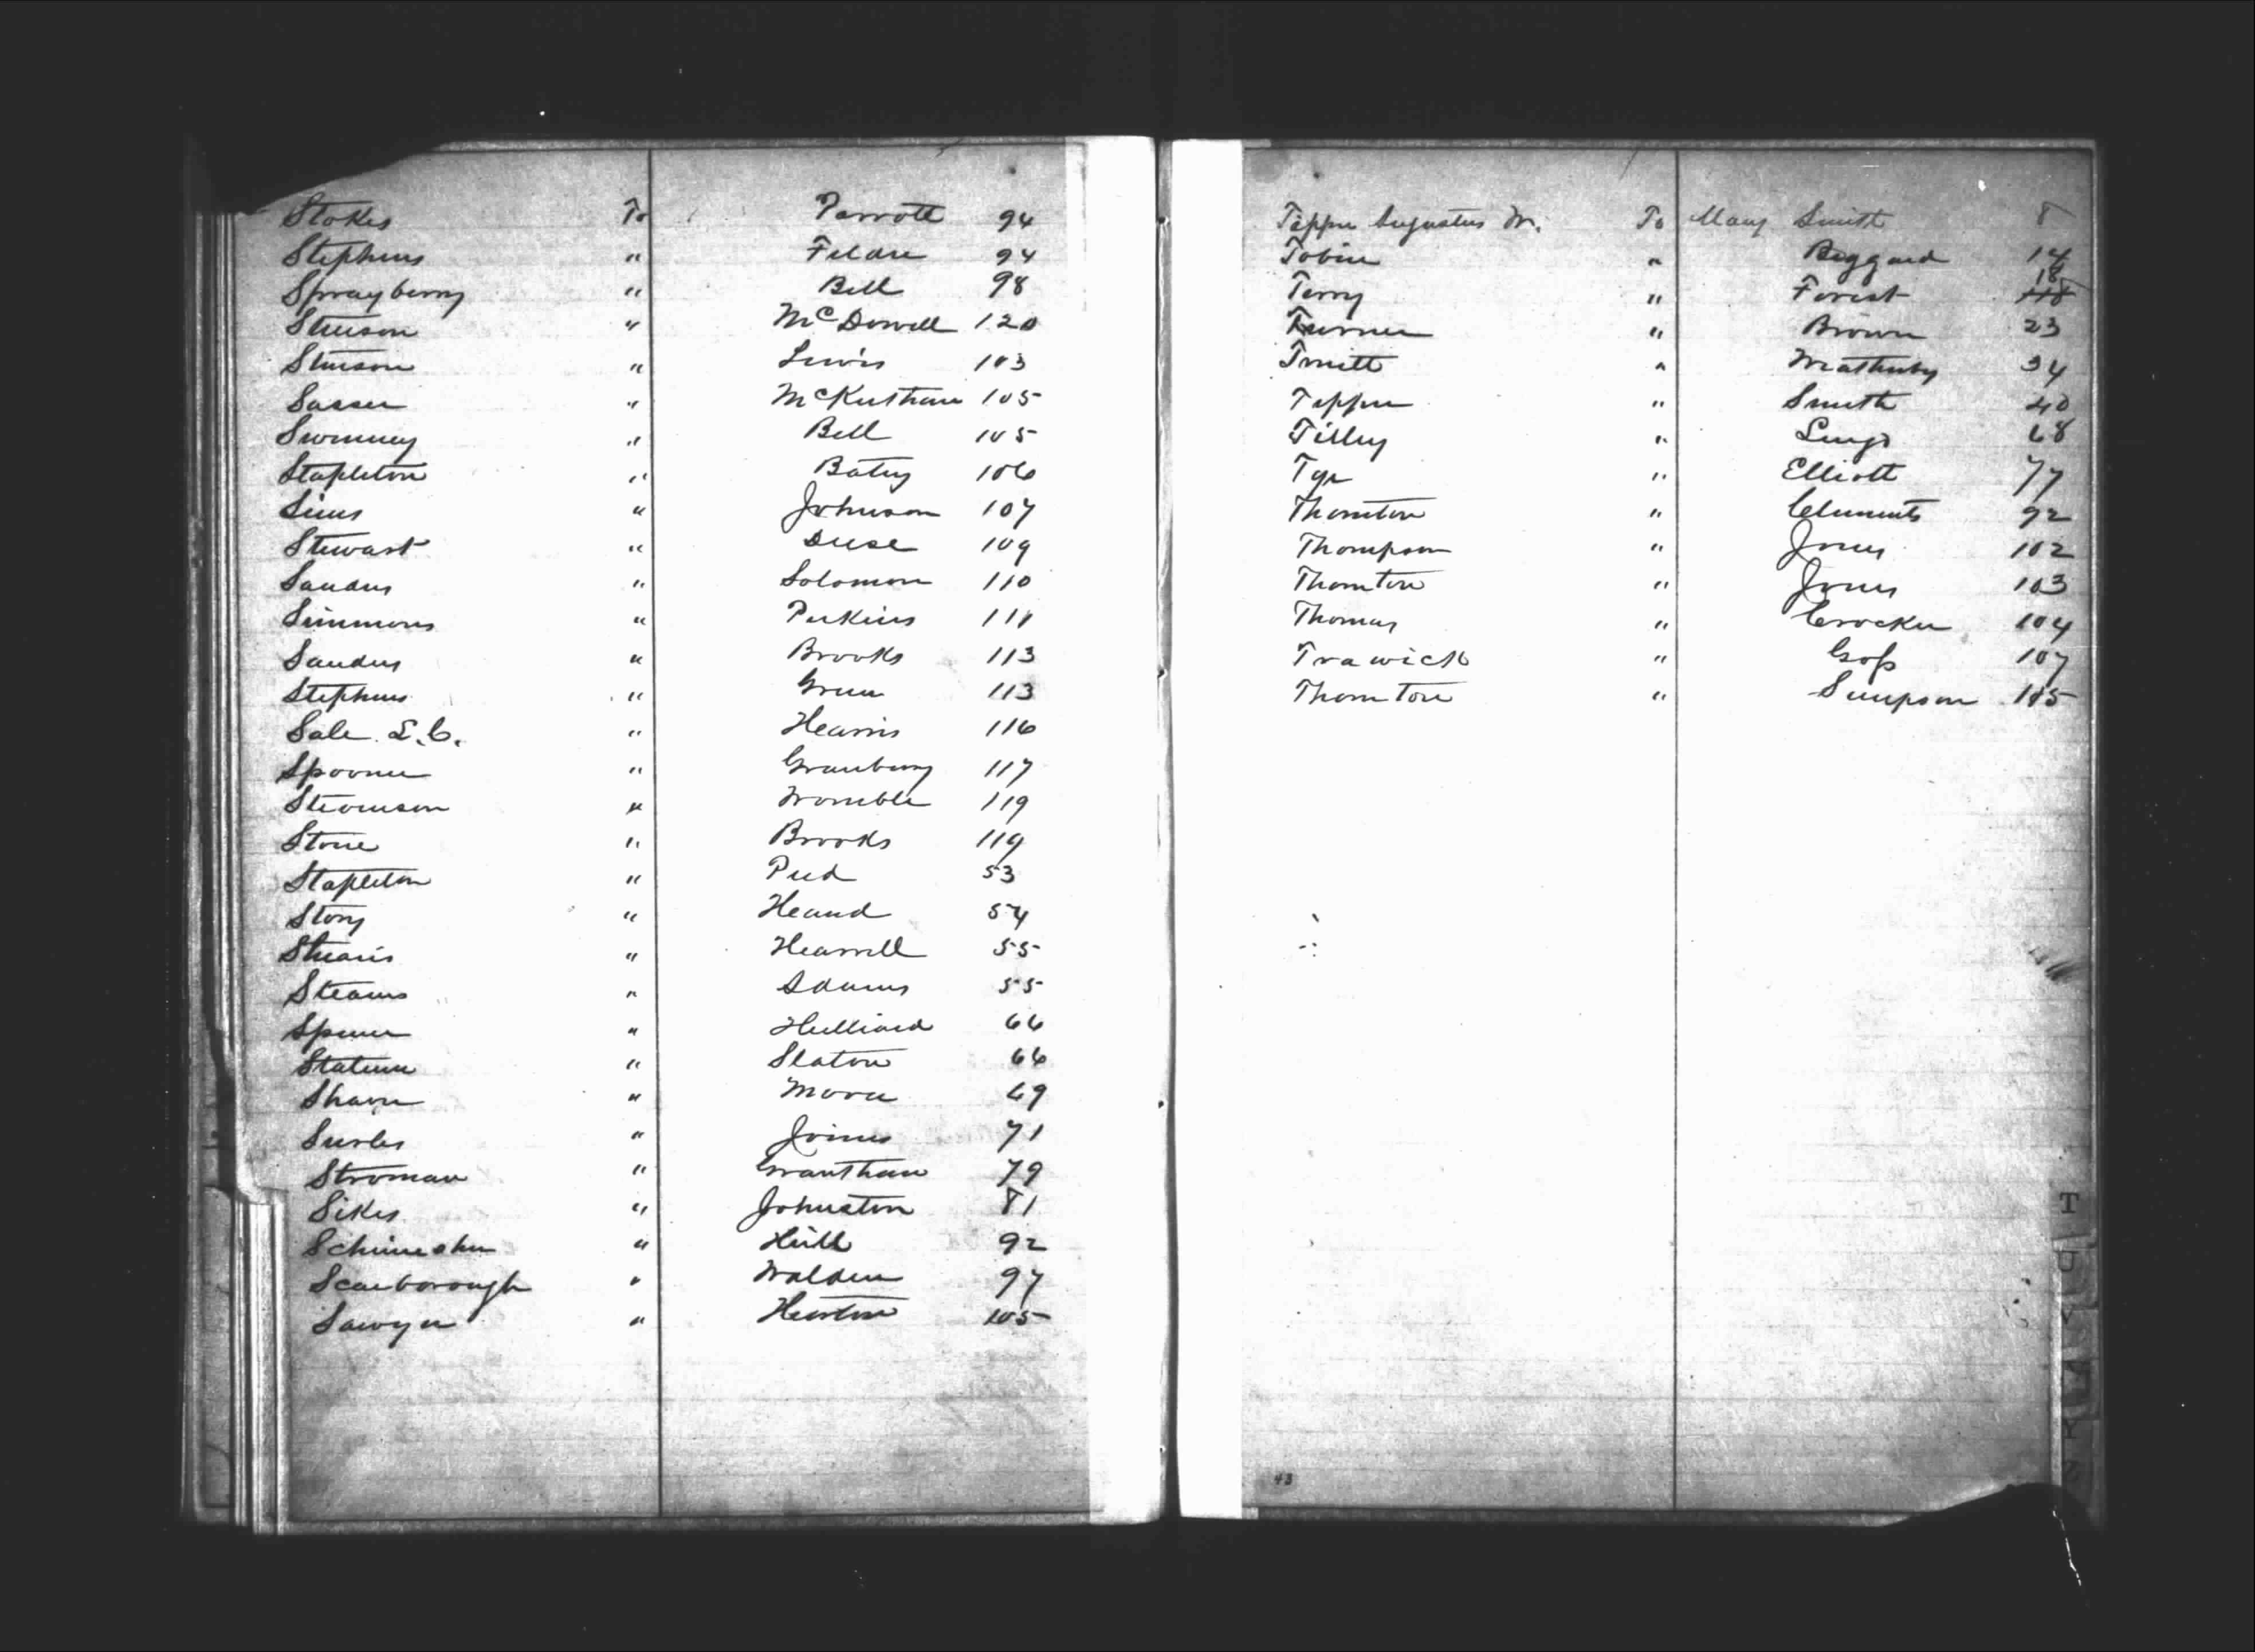 Stokes To Parrott 94
Stephens " Feldre 94
Sprayberry " Bell 98
Stinson " McDowell 120
Stinson " Lewis 103
Sasser " 105
Swinney " Bell 105
Stapleton " Batey 106
Sims " Johnson 107
Stewart " Duse 109
Sanders " Solomon 110
Simmons " Perkins 111
Sanders " Brooks 113
Stephens " Green 113
Sale L.C. " Hearris 116
Spooner " Granberry 117
Stevenson " Womble 119
Stone " Brooks 119
Stapleton " Pied 53
Story " Heard 54
Stearns " Hearrell 55
Stearns " Adams 55
Spence " Hilliard 66
Statum " Slaton 66
" 69
Surles " Joines 71
Stroman " Grantham 79
Sikes " Johnston 81
" Hill 92
Scarborough " Walden 97
Sawyer " Horton 105
Tippen Augustus W. To Mary Smith 8
Tobin " Baggard 14
Terry " Forest 18
Turner " Brown 23
Truitt " Weatherby 34
Tippen " Smith 40
Tilley " Lingo 68
Tye " Elliott 77
Thornton " Clements 92
Thompson " Jones 102
Thornton " Jones 103
Thomas " Crocker 104
Trawick " Goss 107
Thornton " Simpson 105
43
T
U
V